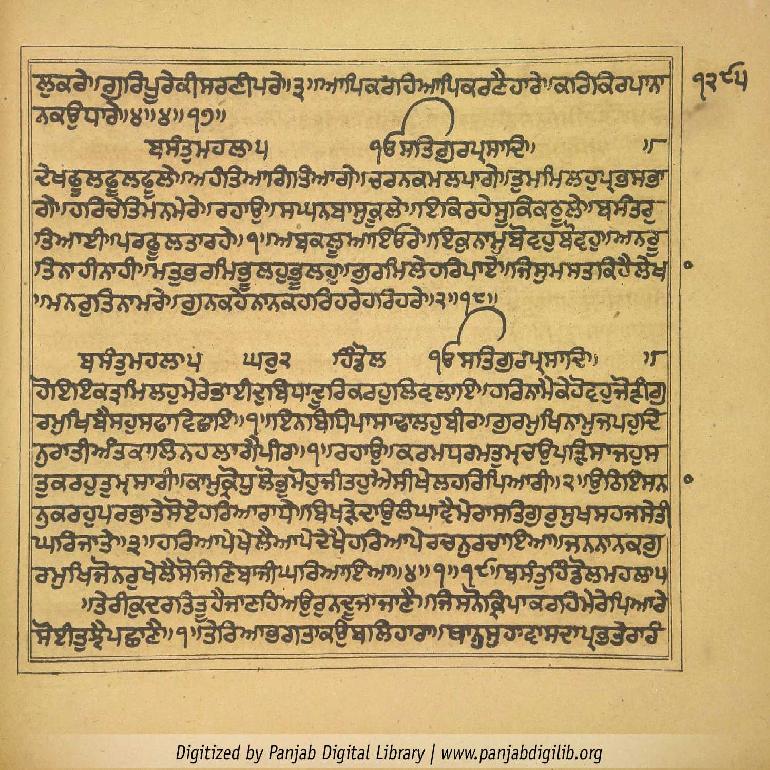 ਲੁਕਰੇ॥ਗੁਰਿਪੂਰੇਕੀਸਰਣੀਪਰੇ॥੩॥ਆਪਿਕਰਹਿਆਪਿਕਰਣੈਹਾਰੇ॥ਕਰਿਕਿਰਪਾਨਾ
੧੨੯੫
ਨਕਉਧਾਰੇ॥੪॥੪॥੧੭॥
ਬਸੰਤੁਮਹਲਾ੫ ੴਸਤਿਗੁਰਪ੍ਰਸਾਦਿ॥ ॥
ਦੇਖੁਫੂਲਫੂਲਫੂਲੇ॥ਅਹੰਤਿਆਗਿਤਿਆਗੇ॥ਚਰਨਕਮਲਪਾਗੇ॥ਤੁਮਮਿਲਹੁਪ੍ਰਭਸਭਾ
ਗੇ॥ਹਰਿਚੇਤਿਮਨਮੇਰੇ॥ਰਹਾਉ॥ਸਘਨਬਾਸੁਕੂਲੇ॥ਇਕਿਰਹੇਸੂਕਿਕਠੂਲੇ॥ਬਸੰਤਰੁ
ਤਿਆਈ॥ਪਰਫੂਲਤਾਰਹੇ॥੧॥ਅਬਕਲੂਆਇਓਰੇ॥ਇਕੁਨਾਮੁਬੋਵਹੁਬੋਵਹੁ॥ਅਨਰੂ
ਤਿਨਾਹੀਨਾਹੀ॥ਮਤੁਭਰਮਿਭੂਲਹੁਭੂਲਹੁ॥ਗੁਰਮਿਲੇਹਰਿਪਾਏ॥ਜਿਸੁਮਸਤਕਿਹੈਲੇਖਾ
॥ਮਨਰੁਤਿਨਾਮਰੇ॥ਗੁਨਕਹੇਨਾਨਕਹਰਿਹਰੇਹਰਿਹਰੇ॥੨॥੧੮॥
ਬਸੰਤੁਮਹਲਾ੫ ਘਰੁ੨ ਹਿੰਡੋਲ ੴਸਤਿਗੁਰਪ੍ਰਸਾਦਿ॥ ॥
ਹੋਇਇਕਤ੍ਰਮਿਲਹੁਮੇਰੇਭਾਈਦੁਬਿਧਾਦੂਰਿਕਰਹੁਲਿਵਲਾਇ॥ਹਰਿਨਾਮੈਕੇਹੋਵਹੁਜੋੜੀਗੁ
ਰਮੁਖਿਬੈਸਹੁਸਫਾਵਿਛਾਇ॥੧॥ਇਨਬਿਧਿਪਾਸਾਢਾਲਹੁਬੀਰ॥ਗੁਰਮੁਖਿਨਾਮੁਜਪਹੁਦਿ
ਨੁਰਾਤੀਅੰਤਕਾਲਿਨਹਲਾਗੈਪੀਰ॥੧॥ਰਹਾਉ॥ਕਰਮਧਰਮਤੁਮ੍ਹਚਉਪੜਿਸਾਜਹੁਸ
ਤੁਕਰਹੁਤੁਮ੍ਹਸਾਰੀ॥ਕਾਮੁਕ੍ਰੋਧੁਲੋਭੁਮੋਹੁਜੀਤਹੁਐਸੀਖੇਲਹਰਿਪਿਆਰੀ॥੨॥ਉਠਿਇਸਨ
ਨੁਕਰਹੁਪਰਭਾਤੇਸੋਏਹਰਿਆਰਾਧੇ॥ਬਿਖੜੇਦਾਉਲੰਘਾਵੈਮੇਰਾਸਤਿਗੁਰੁਸੁਖਸਹਜਸੇਤੀ
ਘਰਿਜਾਤੇ॥੩॥ਹਰਿਆਪੇਖੇਲੈਆਪੇਦੇਖੈਹਰਿਆਪੇਰਚਨੁਰਚਾਇਆ॥ਜਨਨਾਨਕਗੁ
ਰਮੁਖਿਜੋਨਰੁਖੇਲੈਸੋਜਿਣਿਬਾਜੀਘਰਿਆਇਆ॥੪॥੧॥੧੯॥ਬਸੰਤੁਹਿੰਡੋਲਮਹਲਾ੫
॥ਤੇਰੀਕੁਦਰਤਿਤੂਹੈਜਾਣਹਿਅਉਰੁਨਦੂਜਾਜਾਣੈ॥ਜਿਸਨੋਕ੍ਰਿਪਾਕਰਹਿਮੇਰੇਪਿਆਰੇ
ਸੋਈਤੁਝੈਪਛਾਣੈ॥੧॥ਤੇਰਿਆਭਗਤਾਕਉਬਲਿਹਾਰਾ॥ਥਾਨੁਸੁਹਾਵਾਸਦਾਪ੍ਰਭਤੇਰਾਰੰ
Digitized by Panjab Digital Library | www.panjabdigilib.org